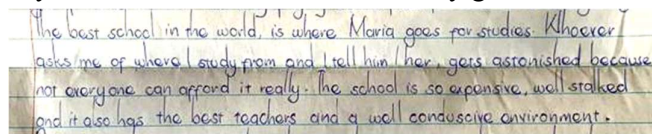 The best school in the world, is where Maria goes for studies. Whoever
asks me of where I study from and I tell him/her, gets astonished because
not everyone can afford it really. The school is so expensive, well stalked
and it also has the best teachers and a well conduscive environment.